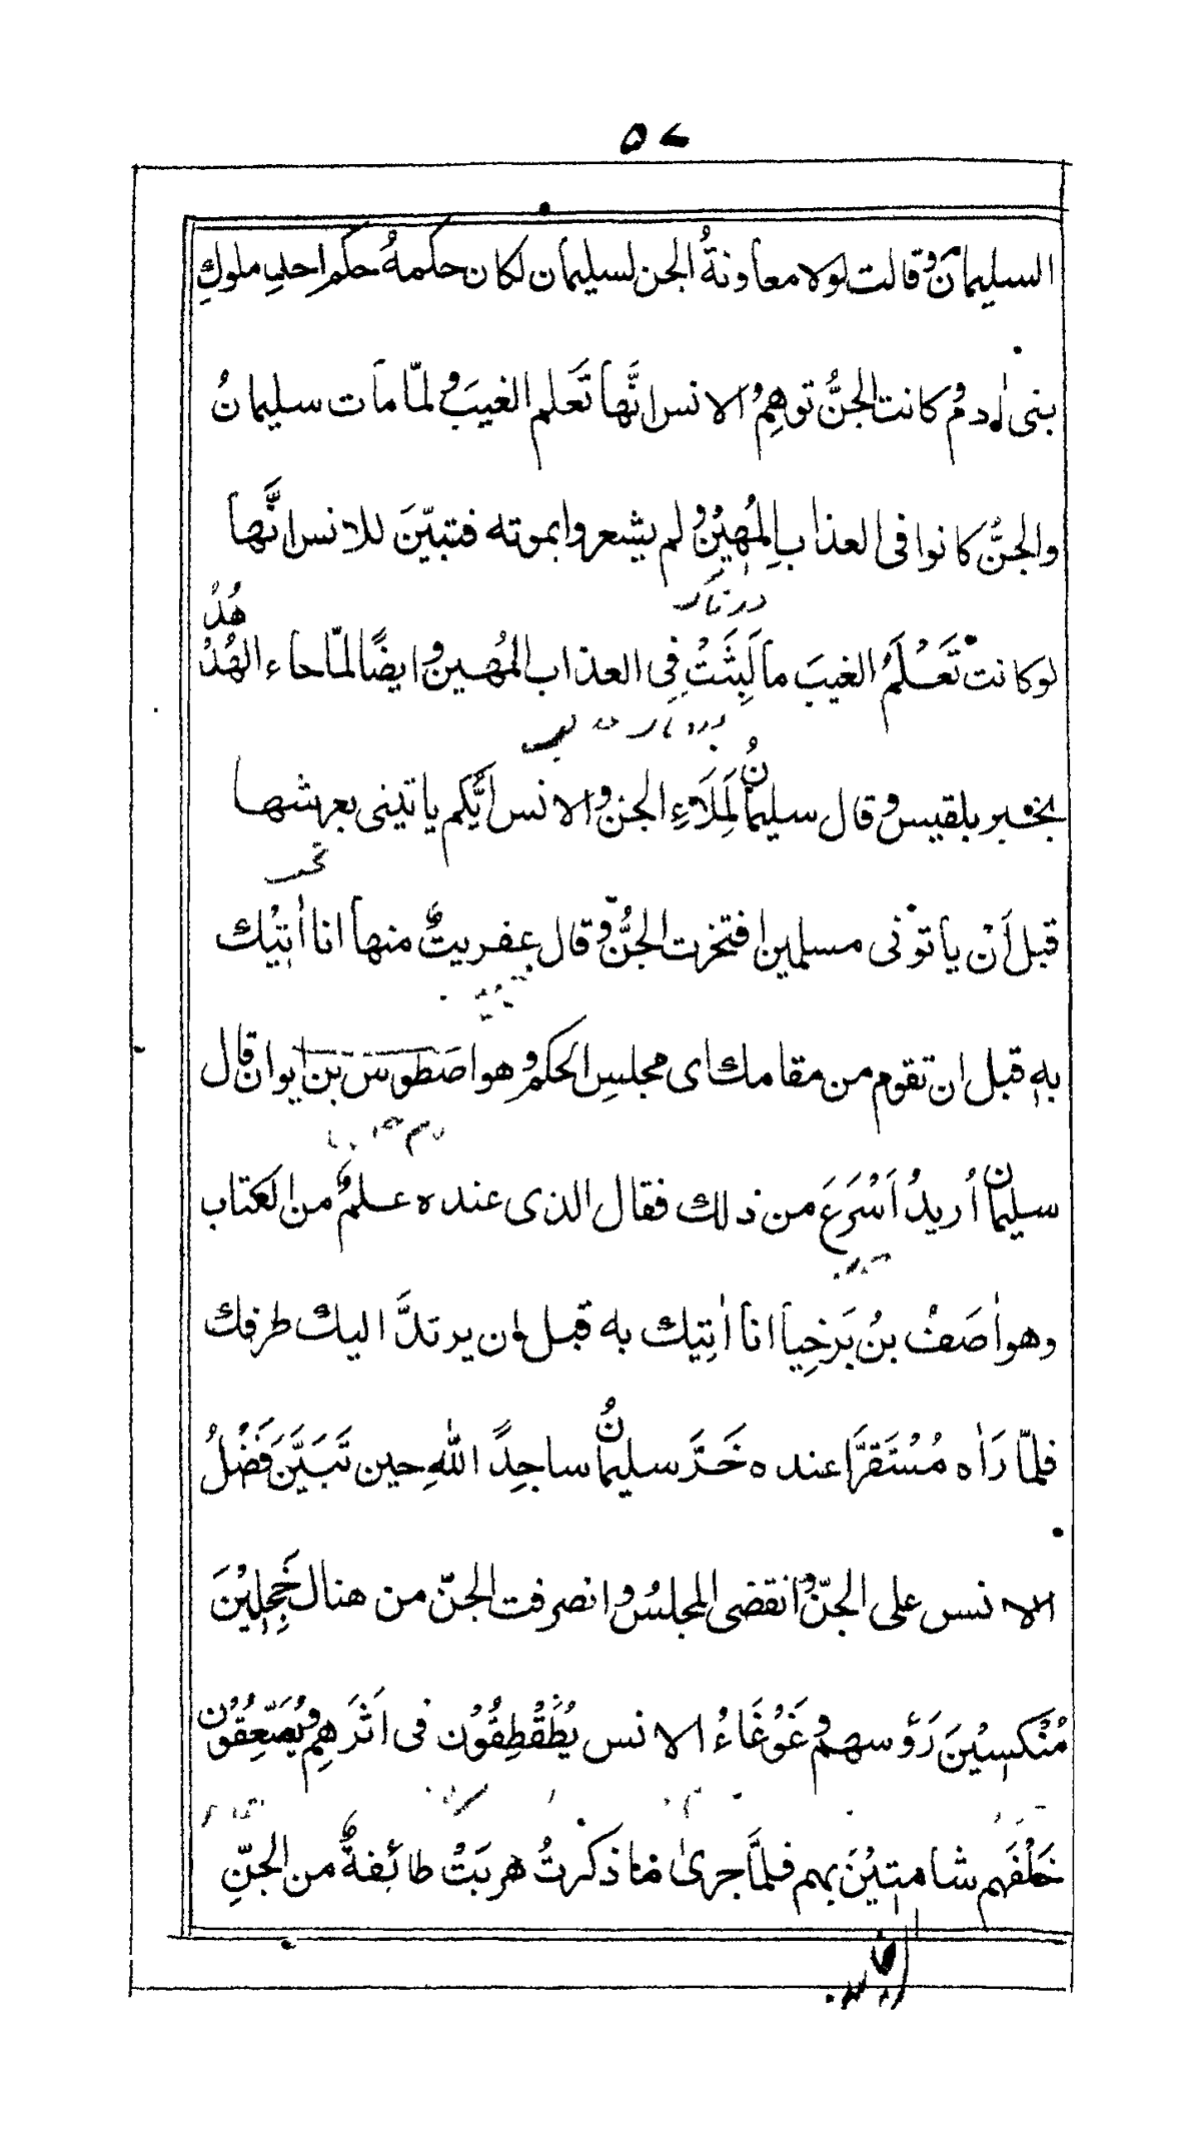 ۵۷
السليمان وقالت لولا معاونةُ الجن لسليمان لكان حكمهُ حكم احدِ ملوكِ
بنى اٰدم وكانت الجنُّ توهِمُ الانس انَّها تَعلم الغيبَ ولمّا مات سليمانُ
والجنُّ كانوا فى العذابِ المُهِيْن ولم يشعروا بموته فتبيّنَ للانس انَّها
لوكانتْ تَعْلَمُ الغيبَ ما لَبِثَتْ فِى العذاب المُهين وايضًا لمّا جاء الهُدْهُدُ
بخبر بلقيس وقال سليمانُ لِمَلَاءِ الجن والانس ايُّكم ياتينى بعرشها
قبل أنْ ياتونى مسلمين افتخرت الجنُّ وقال عفريتٌ منها انا اٰتِيْك
بهٖ قبل ان تقوم من مقامك اى مجلسِ الحكم وهو اصَطوس بن ايوان قال
سليمان اُريدُ اَسْرَعَ من ذلك فقال الذى عنده علمٌ من الكتاب
وهو اٰصَفُ بنُ بَرخِيا انا اٰتِيك به قبل ان يرتدَّ اليك طرفك
فلمّا رَاٰه مُسْتَقرَّا عنده خَرَّ سليمانُ ساجِدًا للّٰهِ حين تَبَيَّنَ فَضْلُ
الانس على الجنّ وانقضى المجلسُ وانصرفت الجنّ من هناك خَجِلِيْنَ
مُنْكِسِيْنَ رَؤسهم وغَوْغَاءُ الانس يُطَقْطِقُوْن فى اَثَرهِم ويُصَعِّقُوْن
خَلْفَهم شامِتِيْنَ بهم فلمَّا جرىٰ ما ذكرتُ هربَتْ طائِفةٌ من الجنِّ